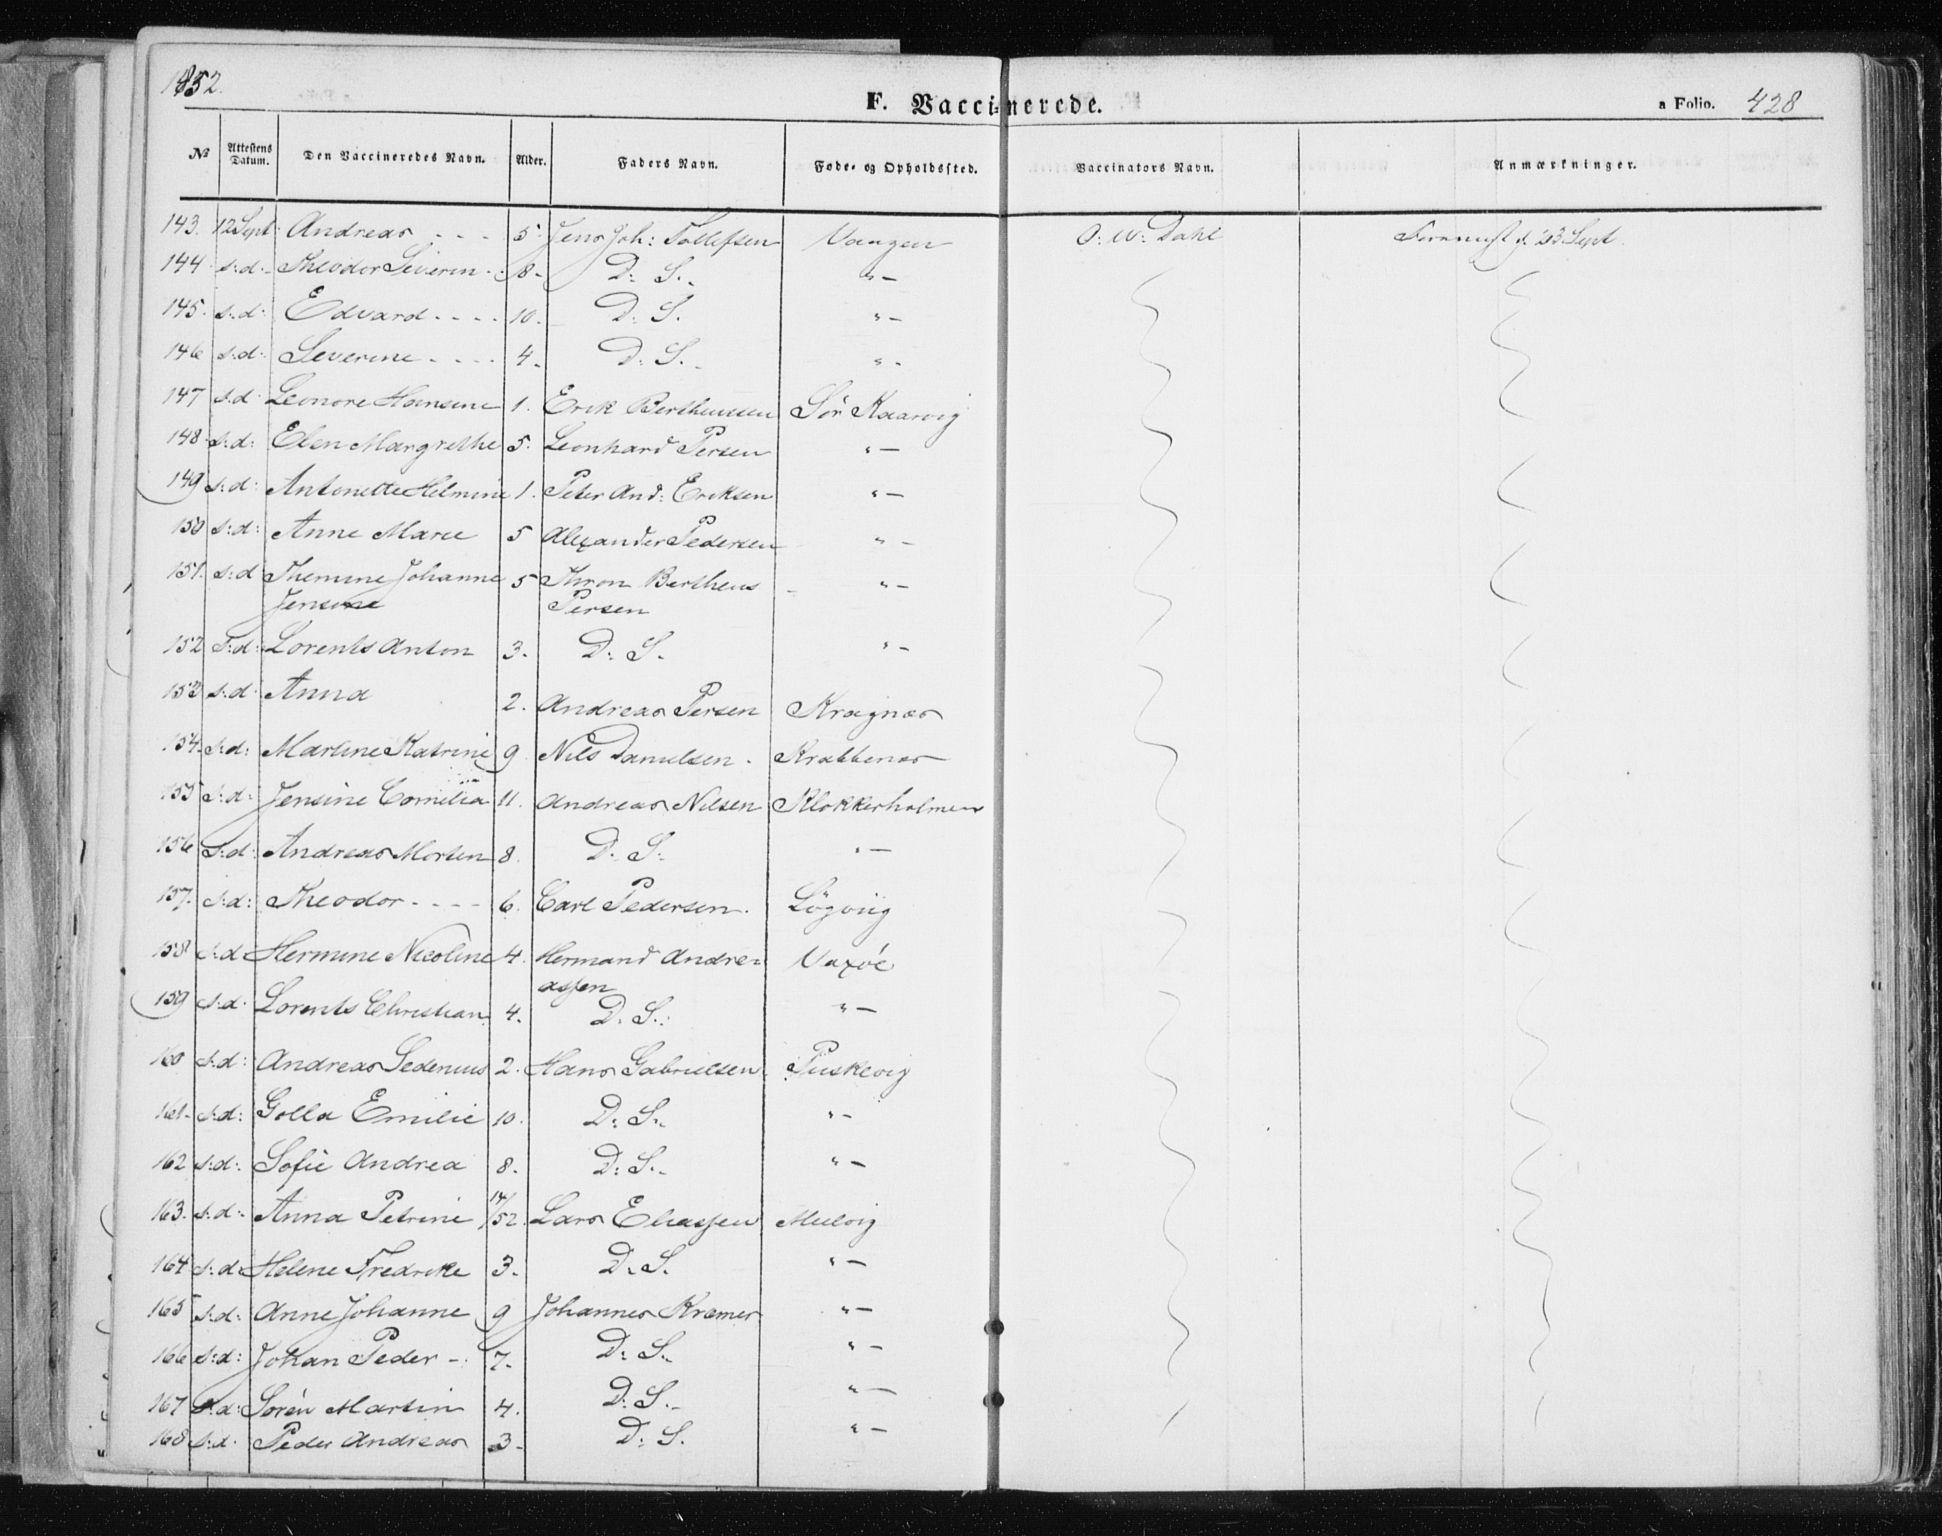 1852.
F. Vaccinerede.
a Folio. 428
№ Attestens Datum. Den Vaccineredes Navn. Alder. Faders Navn. Føde- og Opholdssted. Vaccinators Navn. Anmærkninger.
143. 12 Sept: Andreas - - - 5 Jens Joh: Tollefsen Vaagen O: W: Dahl d. 23 Sept.
144 s:d: Theodor Severin 8 D: S. "-
145. s:d: Edvard - - - - 10. D: S. "-
146 s:d: Severine - - - - 4. D: S. "-
147 s:d Leonore Hansine 1. Erik Bertheussen Sör Kaarvig
148 s:d: Elen Margrethe 5. Leonhard Persen "-
149 s:d: Antonette Helmine 1. Peter And: Eriksen "-
150 s:d: Anne Marie 5 Alexander Pedersen "-
151. s:d Themine Johanne 5 Thron Bertheus "-
Jensine Persen
152 s:d: Lorents Anton 3. D: S. "-
153 s:d: Anna 2. Andreas Persen Kragnæs
154. s:d: Martine Katrine 9 Nils Danielsen. Krabbenæs
155 s:d: Jensine Cornelia 11. Andreas Nilsen Klokkerholmen
156 s:d: Andreas Morten 8. D: S: "-
157. s:d: Theodor - - - - 6. Carl Pedersen. Lögviig
158 s:d Hermine Nicoline 4. Hermand Andre= Vaxöe
assen
159 s:d. Lorents Christian 4. D. S.: "-
160 s:d: Andreas Sedenius 2. Hans Gabrielsen Puskevig
161- s:d: Golla Emilie 10. D: S.. "-
162 s:d: Sofie Andrea 8. D: S.- "-
163. s:d: Anna Petrine 17/52. Lars Eliassen Mulvig
164 s:d: Helene Fredrike 3. D. S. "-
165 s:d: Anne Johanne 9 Johannes Kræmer "-
166 s:d: Johan Peder -. 7. D: S.. "-
167 s:d: Sören Martin 4. D: S.- "-
168 s:d. Peder Andreas 3- D: S. "-